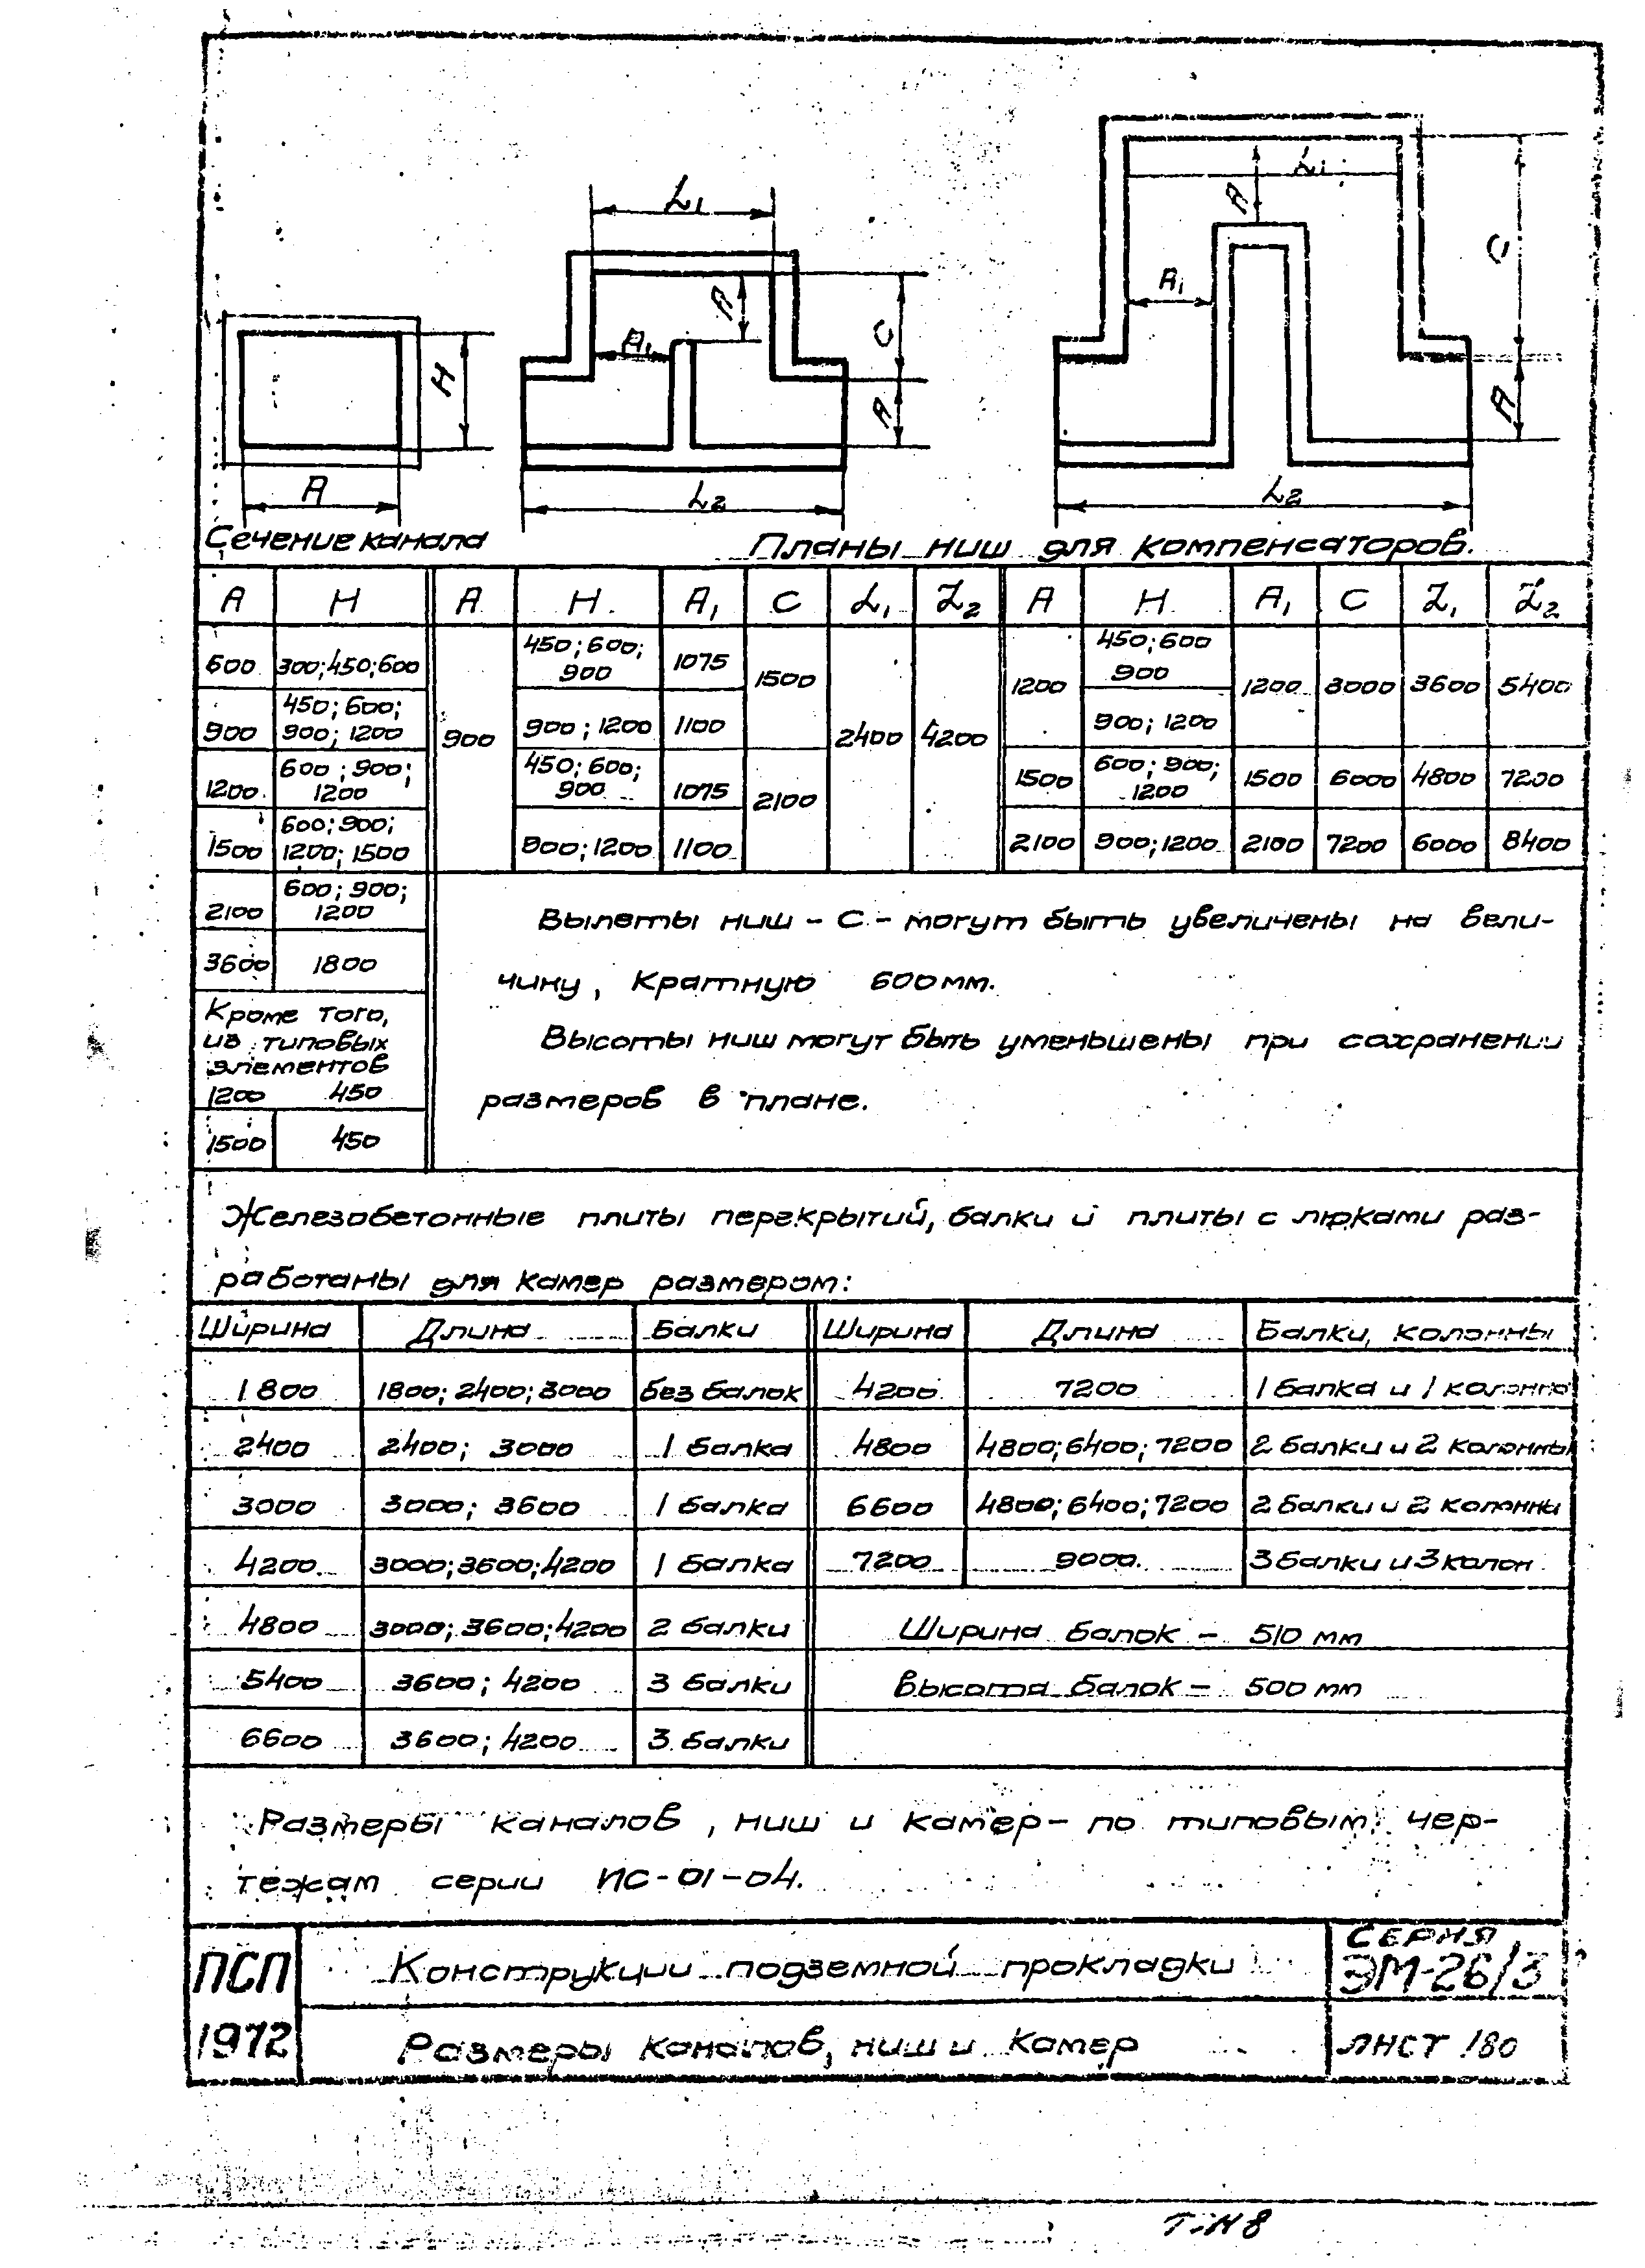 L1
A
L1
C
A1
A
C
A1
H
A
A
A
L2
L2
Сечение канала
Планы ниш для компенсаторов.
A H A H. A1 C L1 L2 A H A1 C L1 L2
600 300;450;600
900 450; 600;
900; 1200
1200 600; 900;
1200
1500 600; 900;
1200; 1500
2100 600; 900;
1200
3600 1800
Кроме того,
из типовых
элементов
1200 450
1500 450
900 450; 600;
900 1075 1500 2400 4200
900; 1200 1100
450; 600;
900 1075 2100
900; 1200 1100
1200 450; 600
900 1200 3000 3600 5400
900; 1200
1500 600; 900;
1200 1500 6000 4800 7200
2100 900; 1200 2100 7200 6000 8400
Вылеты ниш - С - могут быть увеличены на вели-
чину, кратную 600мм.
Высоты ниш могут быть уменьшены при сохранении
размеров в плане.
Железобетонные плиты перекрытий, балки и плиты с люками раз-
работаны для камер размером:
Ширина Длина Балки Ширина Длина Балки, колонны
1800 1800; 2400; 3000 без балок 4200 7200 1 балка и 1 колонна
2400 2400; 3000 1 балка 4800 4800; 6400; 7200 2 балки и 2 колонны
3000 3000; 3600 1 балка 6600 4800; 6400; 7200 2 балки и 2 колонны
4200 3000; 3600; 4200 1 балка 7200 9000 3 балки и 3 колон
4800 3000; 3600; 4200 2 балки Ширина балок - 510 мм
5400 3600; 4200 3 балки высота балок - 500 мм
6600 3600; 4200 3 балки
Размеры каналов, ниш и камер - по типовым чер-
тежам серии ИС-01-04.
ПСП Конструкции подземной прокладки СЕРИЯ
ЭМ-26/3
1972 Размеры каналов, ниш и камер ЛИСТ 180